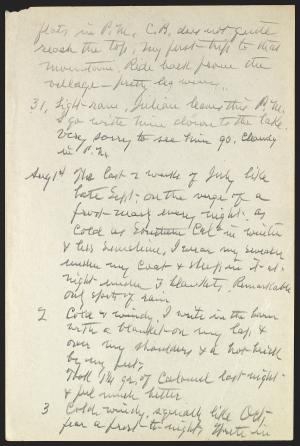 flats in P.M. C.B. does not quite
reach the top. My first trip to that
mountain. Ride back from the
village - pretty leg weary.
31, Light rain, Julian leaves this P.M.
I go with him down to the lake.
Very sorry to see him go. Cloudy
in P.M.
Aug 1st The last 2 weeks of July like
late Sept. on the verge of a
frost nearly every night. as
cold as Southern Cal. in winter
& less sunshine, I wear my sweater
under my coat & sleep in it at
night under 7 blankets, Remarkable
only spits of rain
2 Cold & windy, I write in the barn
with a blanket on my lap &
over my shoulders & a hot brick
by my feet.
Took 1/4 gr. of Calomel last night
& feel much better.
3 Cold, windy, squally like Oct.
fear a frost to-night. Write in